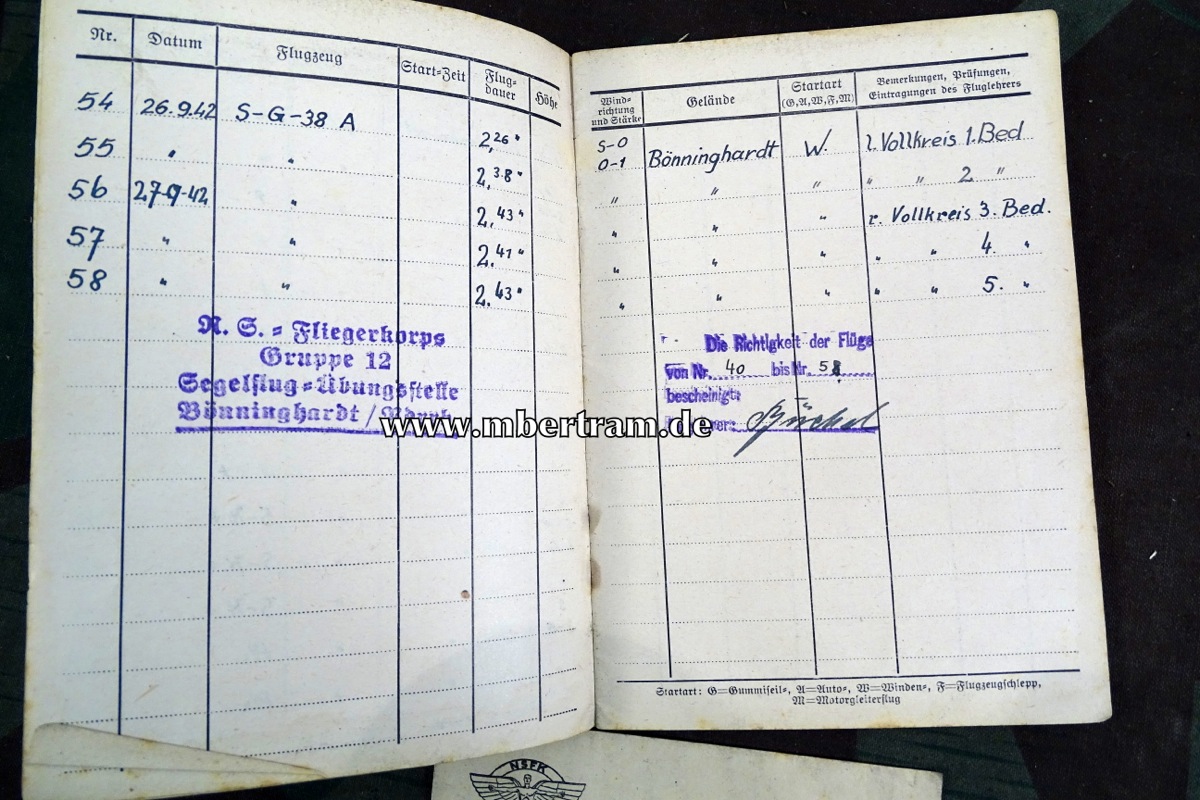 Nr. Datum Flugzeug Start-Zeit Flug-dauer Höhe
54 26.9.42 S-G-38 A 2,26"
55 " " 2,38"
56 27.9.42 " 2,43"
57 " " 2,41"
58 " " 2,43"
N. S.=Fliegerkorps
Gruppe 12
Segelflug=Übungsstelle
Bönninghardt /
www.mbertram.de
Wind-richtung und Stärke Gelände Startart (G,A,W,F,M) Bemerkungen, Prüfungen, Eintragungen des Fluglehrers
S-O 0-1 Bönninghardt W. l. Vollkreis 1. Bed
" " " " " 2 "
" " " r. Vollkreis 3. Bed.
" " " " " 4. "
" " " " " 5. "
Die Richtigkeit der Flüge
von Nr. 40 bis Nr. 58
bescheinigt:
Startart: G=Gummiseil-, A=Auto-, W=Winden-, F=Flugzeugschlepp,
M=Motorgleiterflug
NSFK